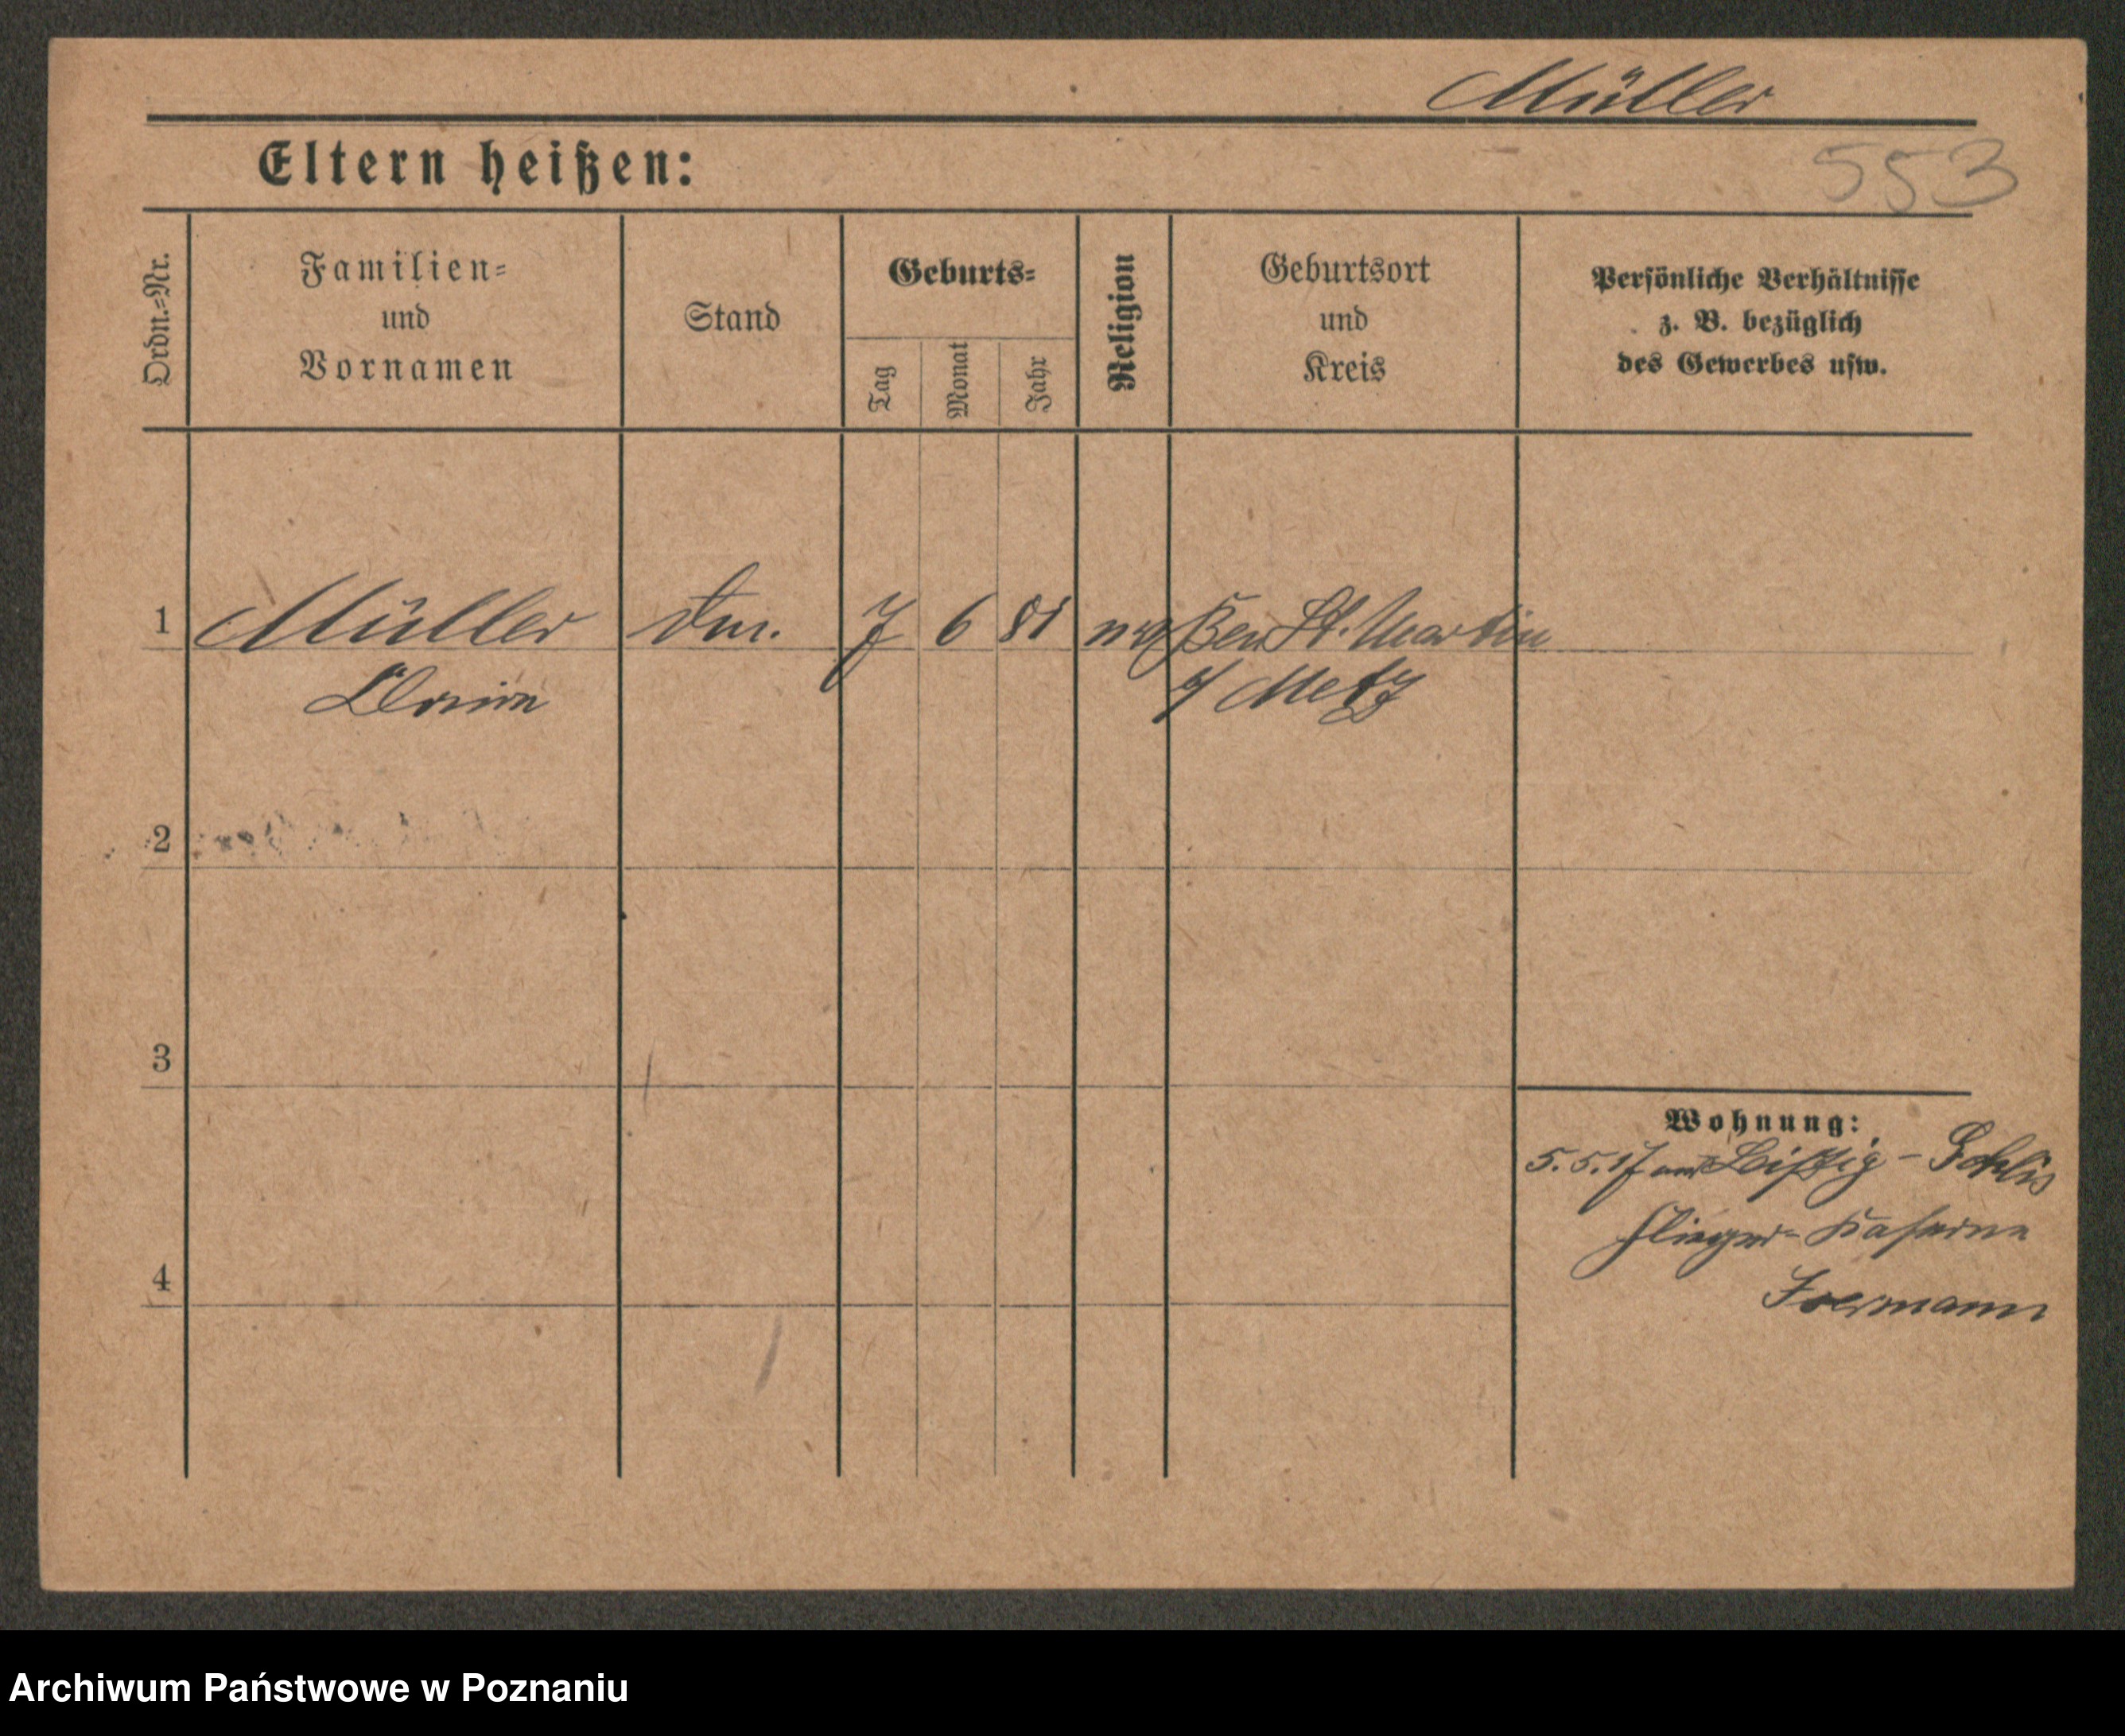 Müller
Eltern heißen:
553
Ordn.=Nr.
Familien=
und
Vornamen
Stand
Geburts=
Tag
Monat
Jahr
Religion
Geburtsort
und
Kreis
Persönliche Verhältnisse
z. B. bezüglich
des Gewerbes usw.
1 Müller 7 6 81 St. Martin
Metz
2
3
Wohnung:
5.5.17 Leipzig - Gohlis
Flieger-Kaserne
4
Archiwum Państwowe w Poznaniu